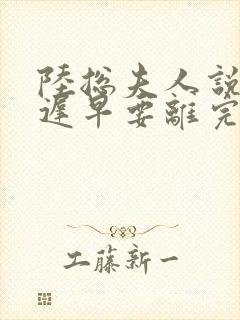 陸總夫人說
遲早要離完
工藤新一